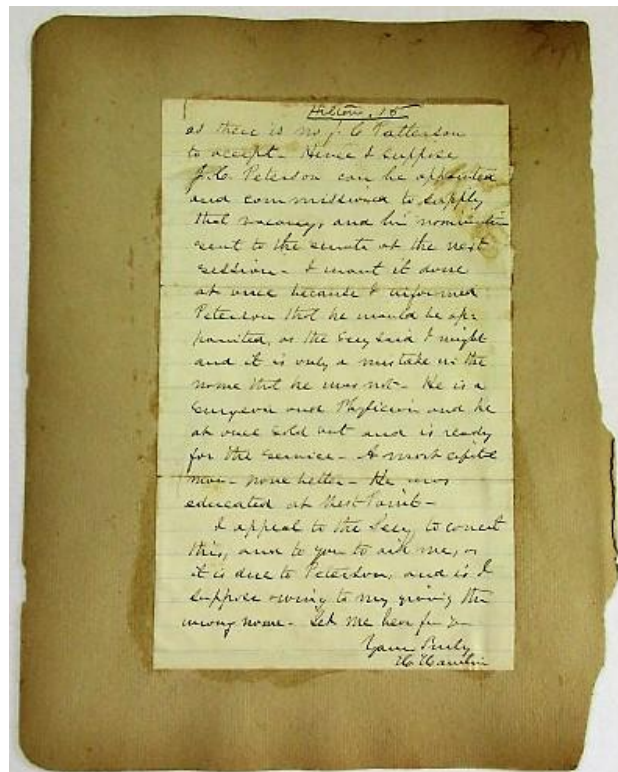 as there is no J. C Patterson
to accept - Hence I suppose
J. C. Peterson can be appointed
and commissioned to supply
that vacancy, and his nomination
sent to the senate at the next
session - I want it done
at once because I informed
Peterson that he would be ap-
pointed, as the Secy said I might
and it is only a mistake in the
name that he was not - He is a
Surgeon and Physician and he
at once sold out and is ready
for the service - A most capital
man - none better - He was
educated at West-Point -
I appeal to the Secy to correct
this, and to you to aid me, as
it is due to Peterson, and is I
suppose owing to my giving the
wrong name - Let me hear
Yours Truly
H Hamlin